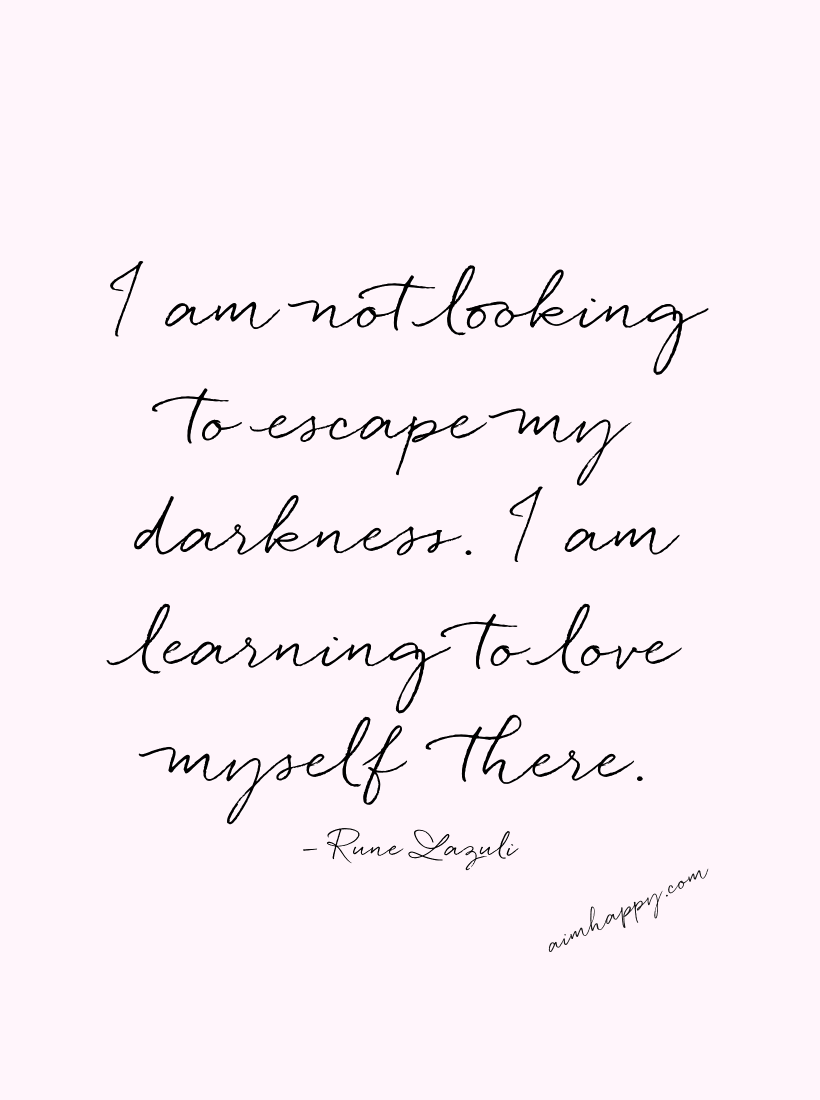 I am not looking
to escape my
darkness. I am
learning to love
myself there.
- Rune Lazuli
aimhappy.com